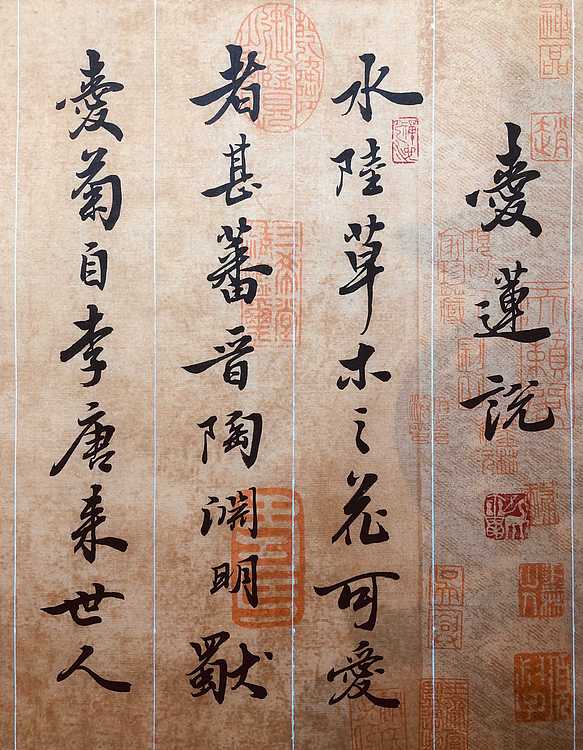 愛蓮說
水陸草木之花可愛
者甚蕃晉陶淵明獨
愛菊自李唐來世人